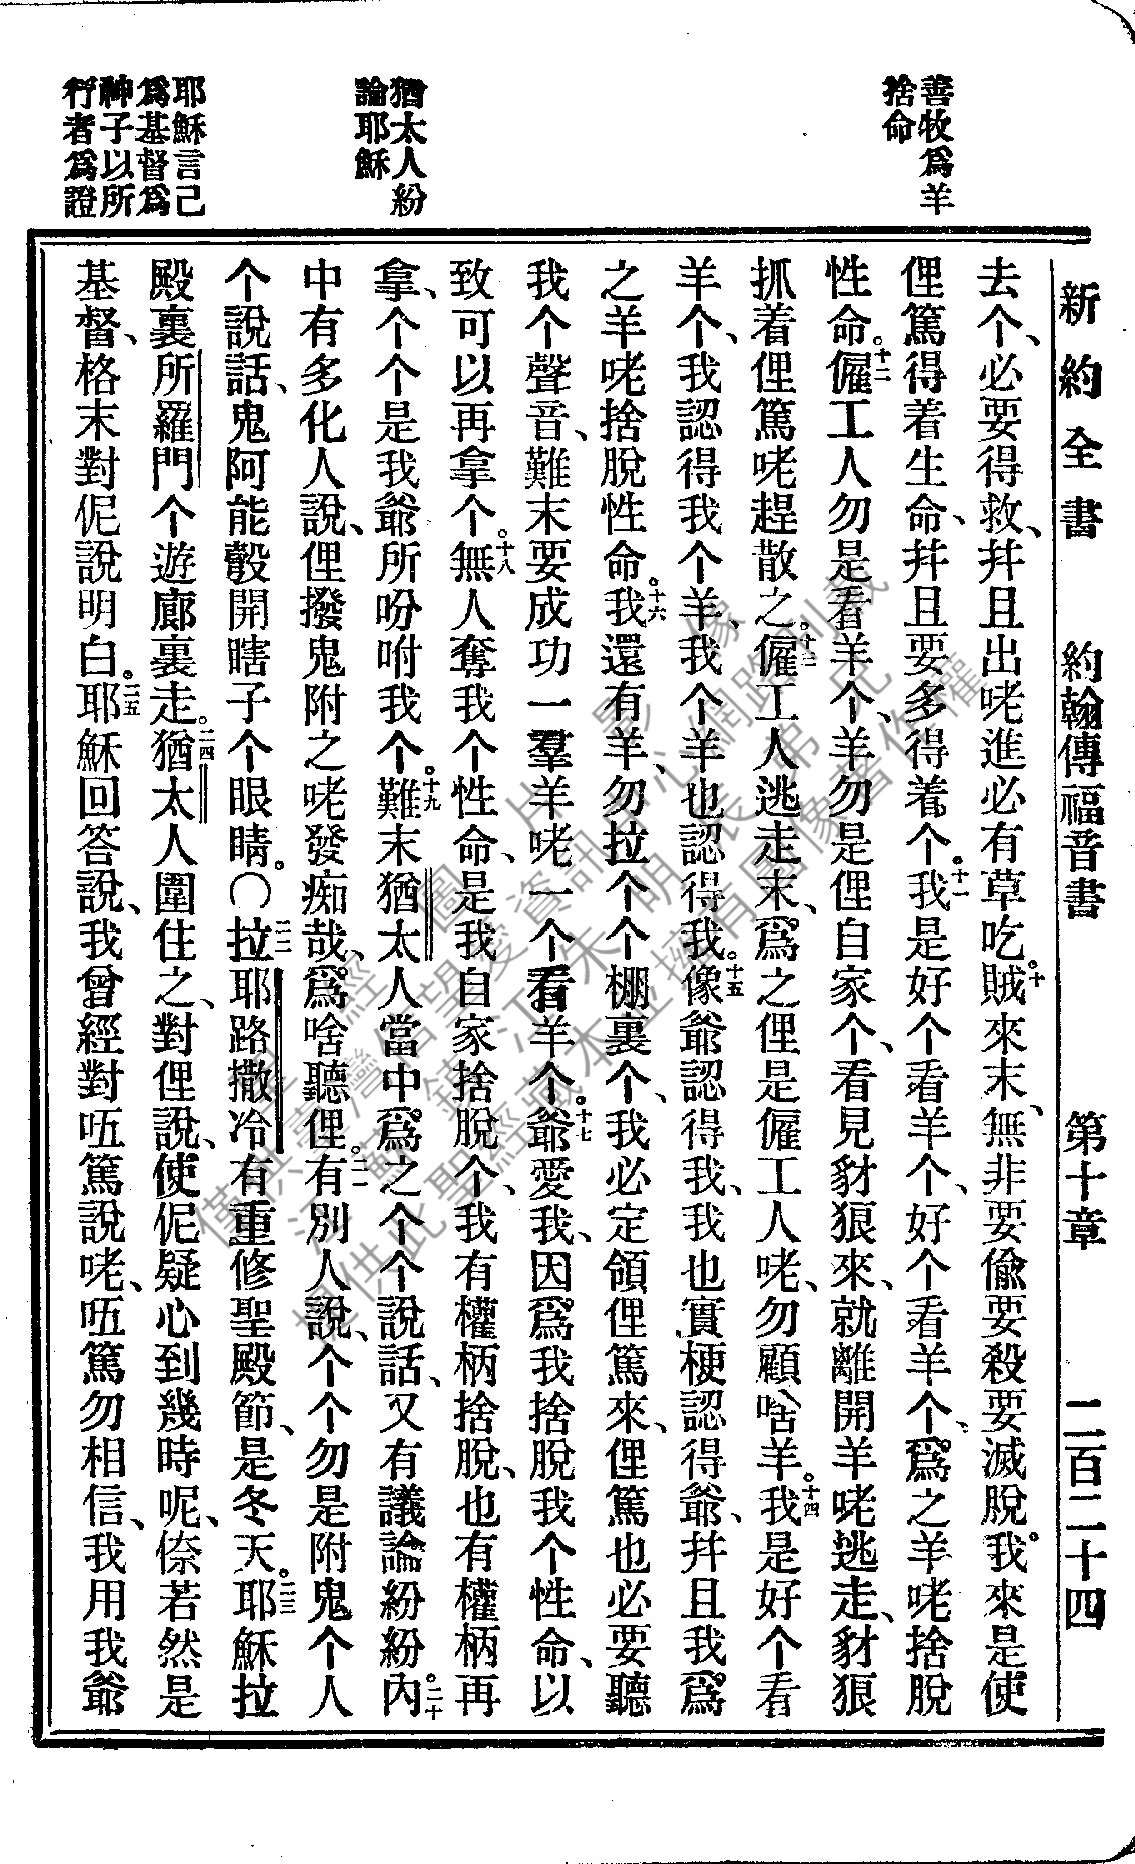 新約全書 約翰傳福音書 第十章 二百二十四
善牧爲羊
捨命
猶太人紛
論耶穌
耶穌言己
爲基督爲
神子以所
行者爲證
去个、必要得救、幷且出咾進必有草吃。十賊來末、無非要偸要殺要滅脫。我來是使
俚篤得着生命、幷且要多得着个。十一我是好个看羊个、好个看羊个、爲之羊咾捨脫
性命。十二僱工人勿是看羊个、羊勿是俚自家个、看見豺狼來、就離開羊咾逃走、豺狼
抓着俚篤咾趕散之。十三僱工人逃走末、爲之俚是僱工人咾、勿顧啥羊。十四我是好个看
羊个、我認得我个羊、我个羊也認得我。十五像爺認得我、我也實梗認得爺、幷且我爲
之羊咾捨脫性命。十六我還有羊、勿拉个个棚裏个、我必定領俚篤來、俚篤也必要聽
我个聲音、難末要成功一羣羊咾一个看羊个。十七爺愛我、因爲我捨脫我个性命、以
致可以再拿个。十八無人奪我个性命、是我自家捨脫个、我有權柄捨脫、也有權柄再
拿、个个是我爺所吩咐我个。十九難末猶太人當中、爲之个个說話、又有議論紛紛。二十內
中有多化人說、俚撥鬼附之咾發痴哉、爲啥聽俚。二一有別人說、个个勿是附鬼个人
个說話、鬼阿能彀開瞎子个眼睛。〇二二拉耶路撒冷有重修聖殿節、是冬天。二三耶穌拉
殿裏所羅門个遊廊裏走。二四猶太人圍住之、對俚說、使伲疑心到幾時呢、倷若然是
基督、格末對伲說明白。二五耶穌回答說、我曾經對㕶篤說咾、㕶篤勿相信、我用我爺
僅供臺灣信望愛資訊中心網路刊載
提供此聖經藏本並擁有圖像著作權